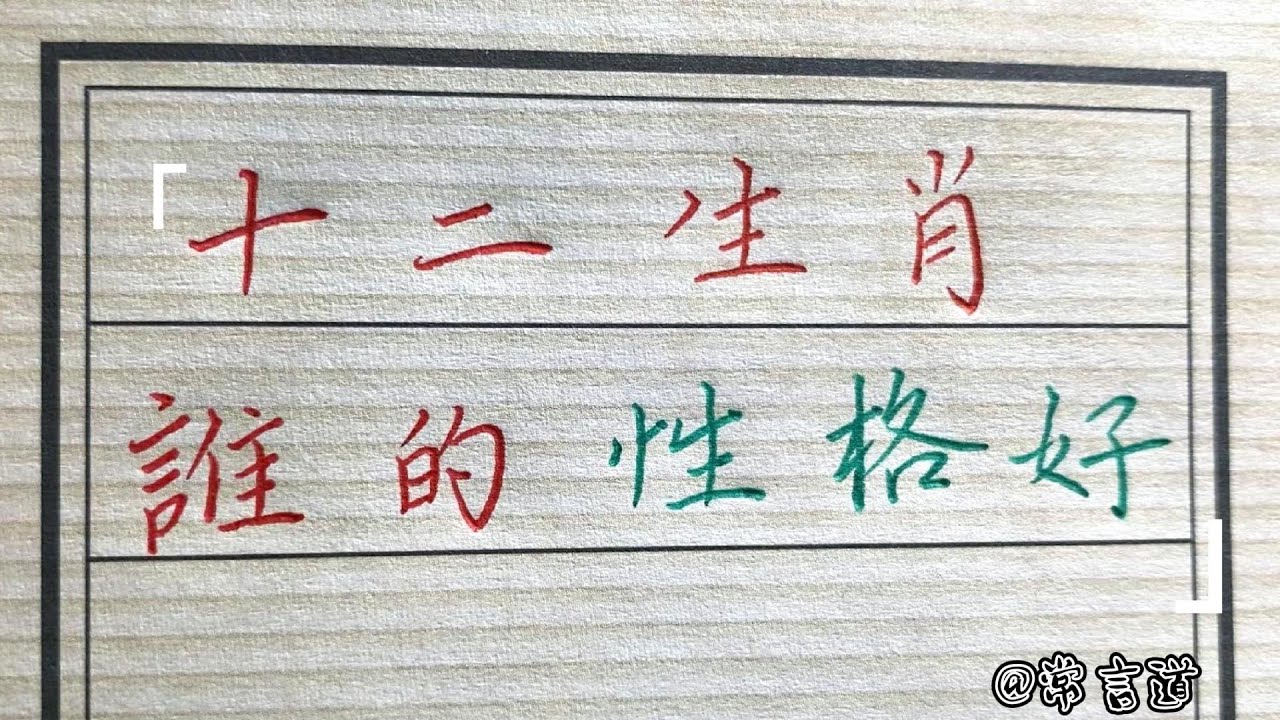 「十二生肖
誰的性格好」
@常言道